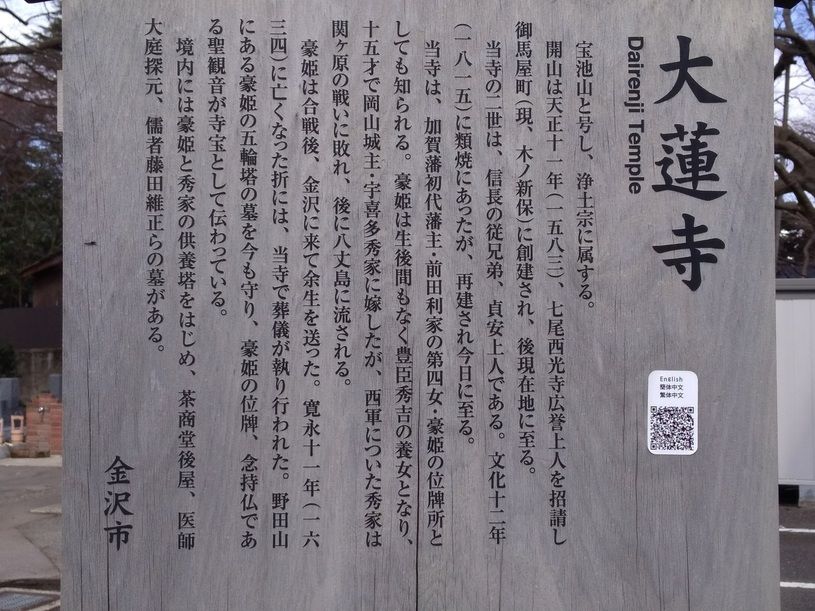 大蓮寺
Dairenji Temple
宝池山と号し、浄土宗に属する。
開山は天正十一年(一五八三)、七尾西光寺広誉上人を招請し
御馬屋町(現、木ノ新保)に創建され、後現在地に至る。
当寺の二世は、信長の従兄弟、貞安上人である。文化十二年
(一八一五)に類焼にあったが、再建され今日に至る。
当寺は、加賀藩初代藩主・前田利家の第四女・豪姫の位牌所と
しても知られる。豪姫は生後間もなく豊臣秀吉の養女となり、
十五才で岡山城主・宇喜多秀家に嫁したが、西軍についた秀家は
関ヶ原の戦いに敗れ、後に八丈島に流される。
豪姫は合戦後、金沢に来て余生を送った。寛永十一年(一六
三四)に亡くなった折には、当寺で葬儀が執り行われた。野田山
にある豪姫の五輪塔の墓を今も守り、豪姫の位牌、念持仏であ
る聖観音が寺宝として伝わっている。
境内には豪姫と秀家の供養塔をはじめ、茶商堂後屋、医師
大庭探元、儒者藤田維正らの墓がある。
金沢市
English
簡体中文
繁体中文